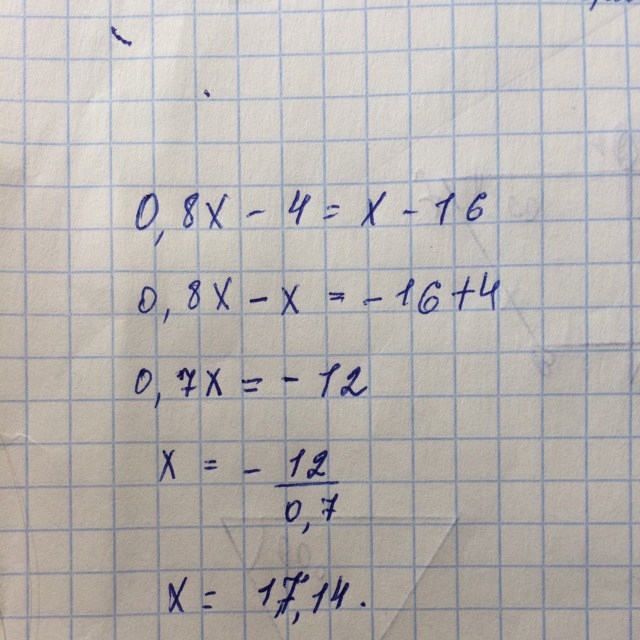 0,8x - 4 = x - 16
0,8x - x = -16 + 4
0,7x = - 12
x = - 12/0,7
x = 17,14.